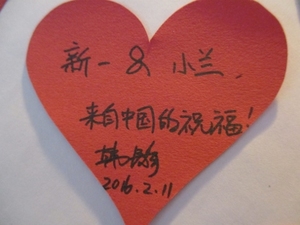 新一 & 小兰,
来自中国的祝福!
2016.2.11